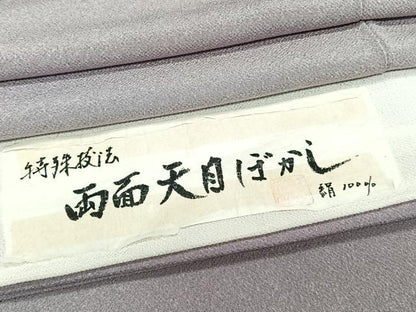 特殊技法
両面天目ぼかし
絹100%